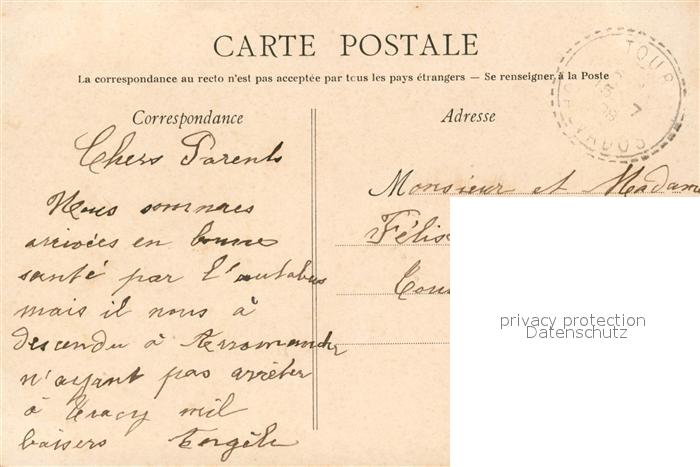 CARTE POSTALE
La correspondance au recto n'est pas acceptée par tous les pays étrangers — Se renseigner à la Poste
TOUR
CALVADOS
Correspondance
Chers Parents
Nous sommes
arrivées en bonne
santé par l'autobus
mais il nous à
descendu à Arromanche
n'ayant pas arrêter
à Tracy mil
baisers
Adresse
Monsieur et Madame
Félix
privacy protection
Datenschutz